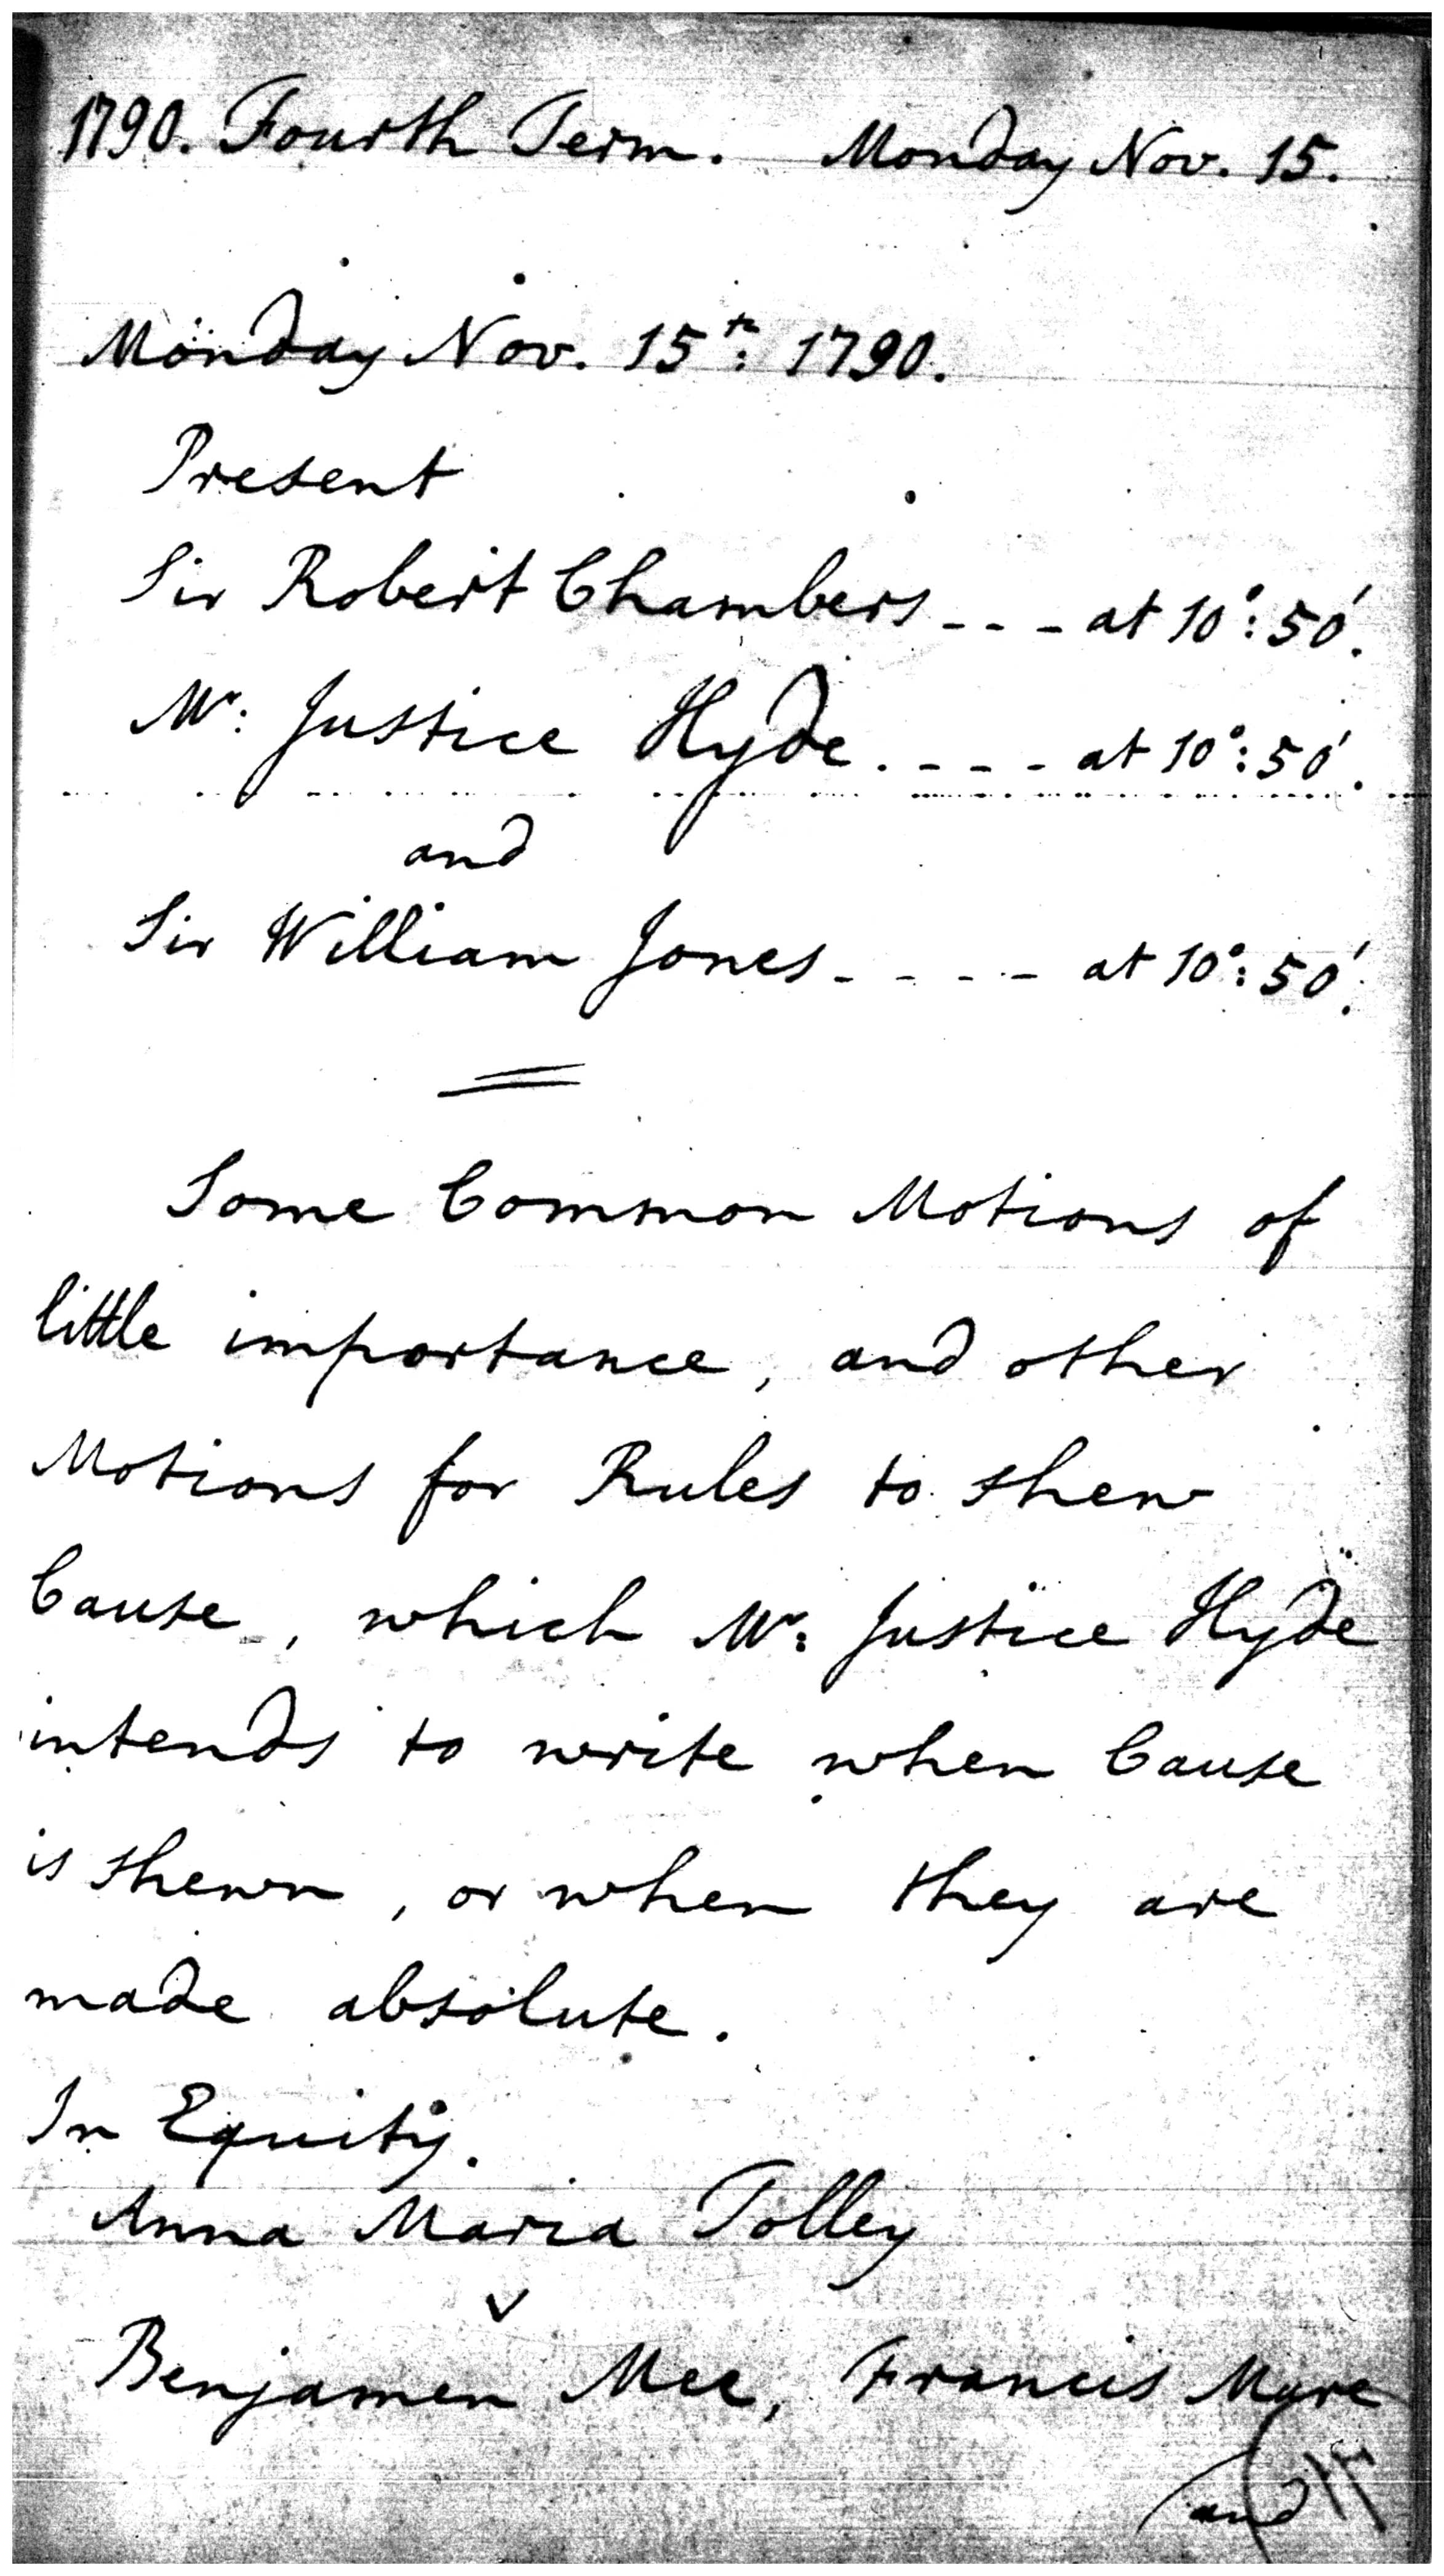 1790. Fourth Term. Monday Nov. 15.
Monday Nov. 15th: 1790.
Present
Sir Robert Chambers - - - at 10°: 50'.
Mr: Justice Hyde . - - - - at 10°: 50'.
and
Sir William Jones - - - - - at 10°: 50'.
Some Common Motions of
little importance, and other
Motions for Rules to shew
Cause, which Mr: Justice Hyde
intends to write when Cause
is shewn, or when they are
made absolute.
In Equity.
Anna Maria Tolley
v
Benjamen Mee, Francis Mure
and